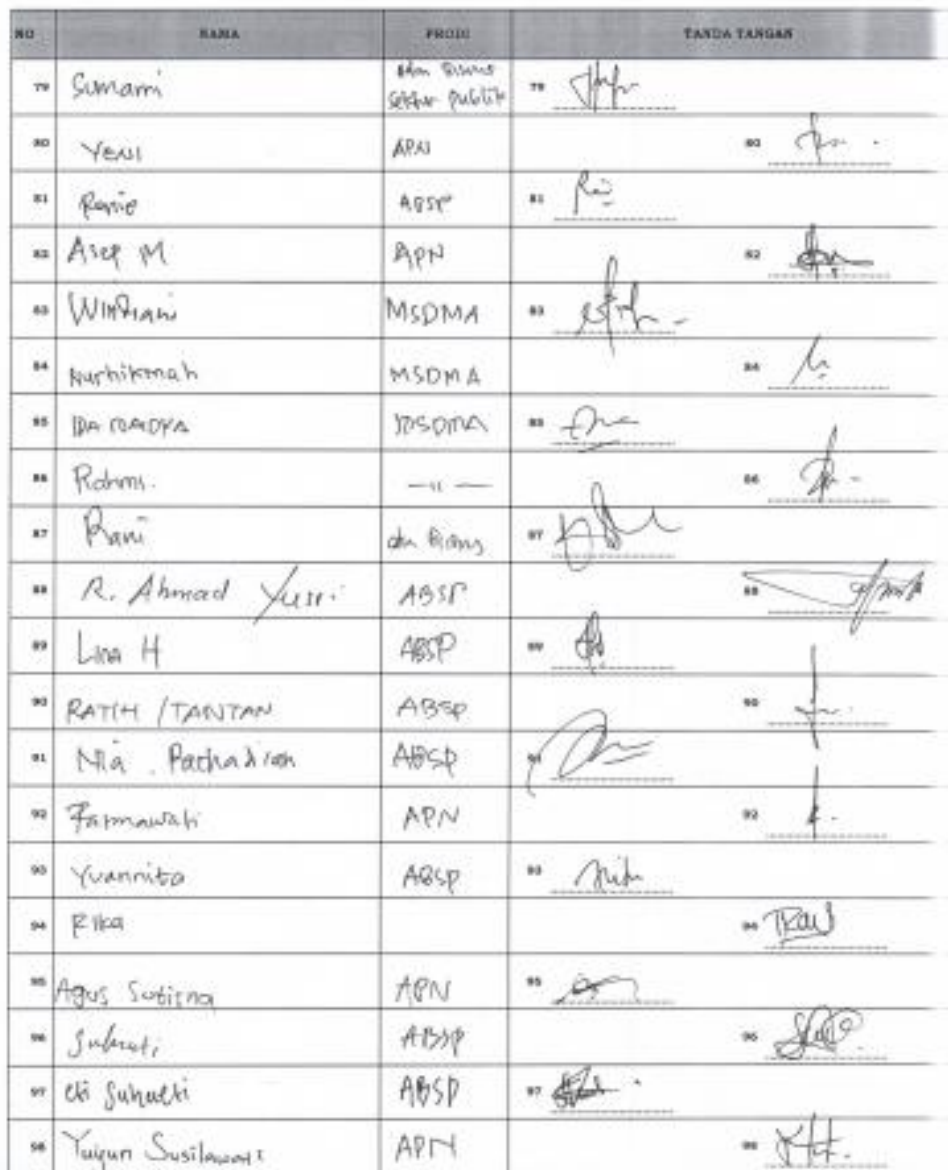 NO NAMA PRODI TANDA TANGAN
79 Sumarni Adm Bisnis 79
Sektor Publik
80 YENI APN 80
81 Ranie ABSP 81
82 Asep M APN 82
83 Windiani MSDMA 83
84 Nurhikmah MSDMA 84
85 IDA MSDMA 85
86 Rahmi. —"— 86
87 Rani 87
88 R. Ahmad Yusri ABSP 88
89 Lina H ABSP 89
90 RATIH / TANTAN ABSP 90
91 Nia ABSP 91
92 Fatmawati APN 92
93 Yuannita ABSP 93
94 Rika 94
95 Agus Sutisna APN 95
96 ABSP 96
97 ABSP 97
98 Yuyun Susilawati APN 98